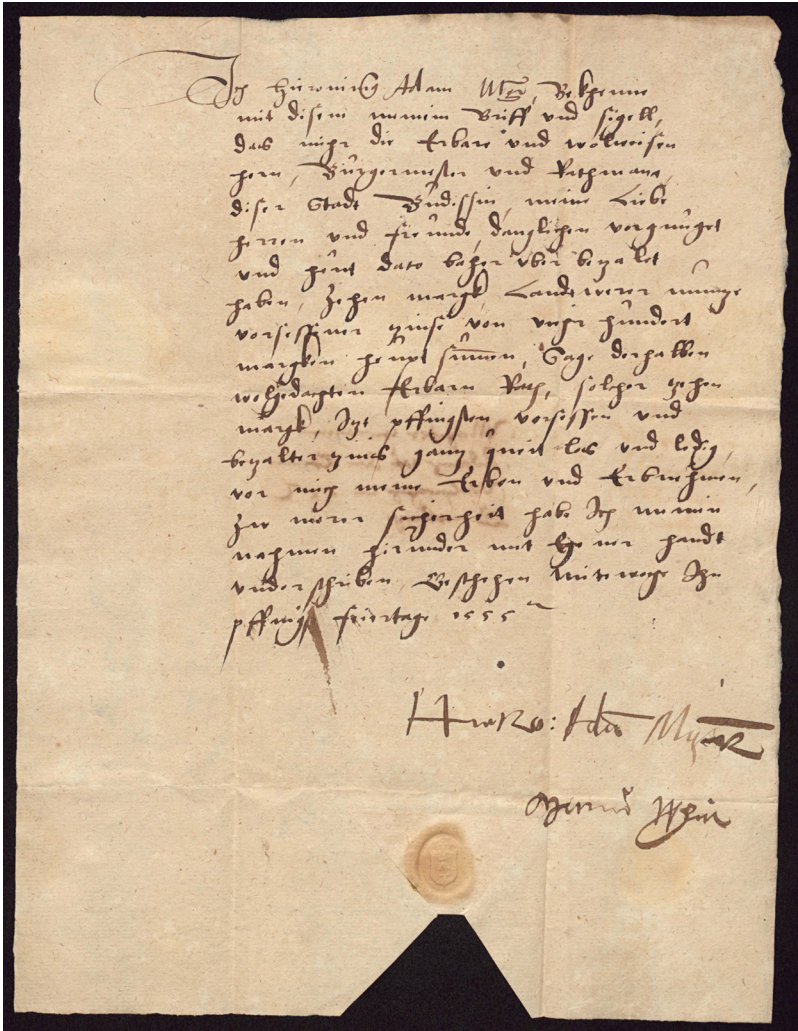 Ich Hieronimus Adam Mey, Bekhenne
mit disem meinem Briff und sigell,
das mihr die Erbare und wolweisen
hern, Bürgermester und Rathmane,
diser Stadt Budissin, meine Liebe
herren und freunde, vorgnuget
und heut dato uber bezalet
haben, Zehen margk, Landswerer muntze
vorsessener zinse von vihr hundert
margken heupt summen, Sage derhalben
wolgedachten Erbarn Rath, solcher zehen
margk, Itzt pffingsten vorsessen und
bezalter zins gantz queit los und ledig,
vor mich meine Erben und Erbnehmen,
Zw merer sicherheit habe Ich meinen
nahmen hirunder mit handt
underschriben, Geschehen mitwoche Inn
pffingst feiertage 1555
Adam